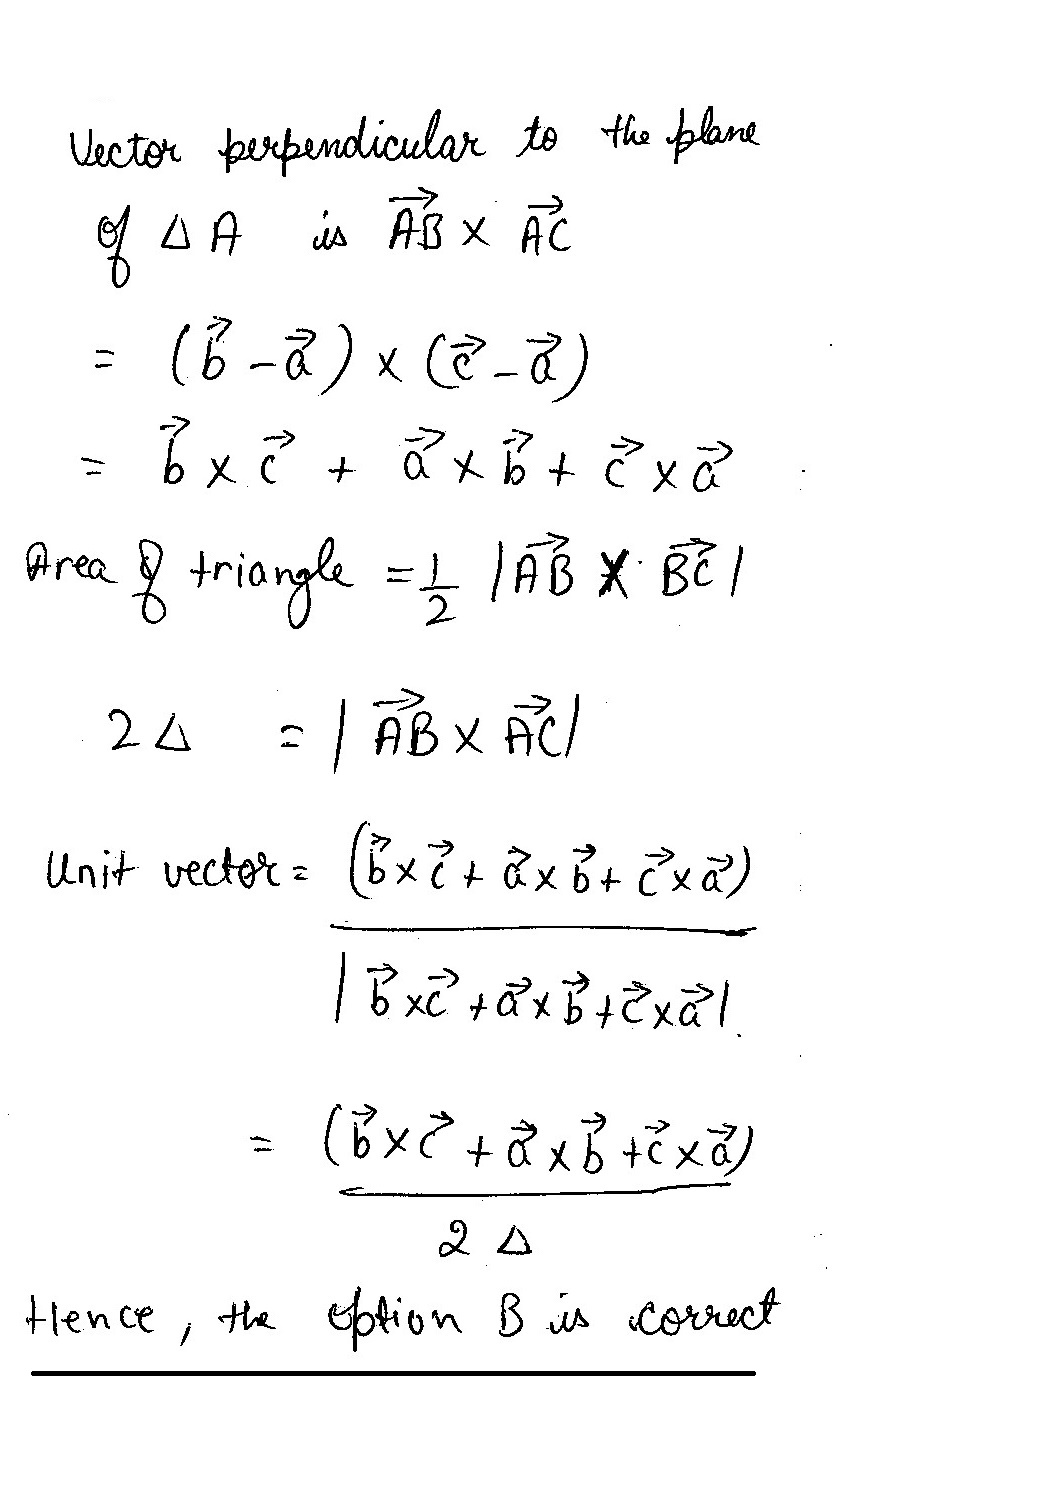 Vector perpendicular to the plane
of △ A is $\vec{AB} \times \vec{AC}$
= $(\vec{b} - \vec{a}) \times (\vec{c} - \vec{a})$
= $\vec{b} \times \vec{c} + \vec{a} \times \vec{b} + \vec{c} \times \vec{a}$
Area of triangle = $\frac{1}{2} |\vec{AB} \times \vec{BC}|$
2△ = $|\vec{AB} \times \vec{AC}|$
Unit vector = $\frac{(\vec{b} \times \vec{c} + \vec{a} \times \vec{b} + \vec{c} \times \vec{a})}{|\vec{b} \times \vec{c} + \vec{a} \times \vec{b} + \vec{c} \times \vec{a}|}$
= $\frac{(\vec{b} \times \vec{c} + \vec{a} \times \vec{b} + \vec{c} \times \vec{a})}{2 △}$
Hence, the option B is correct